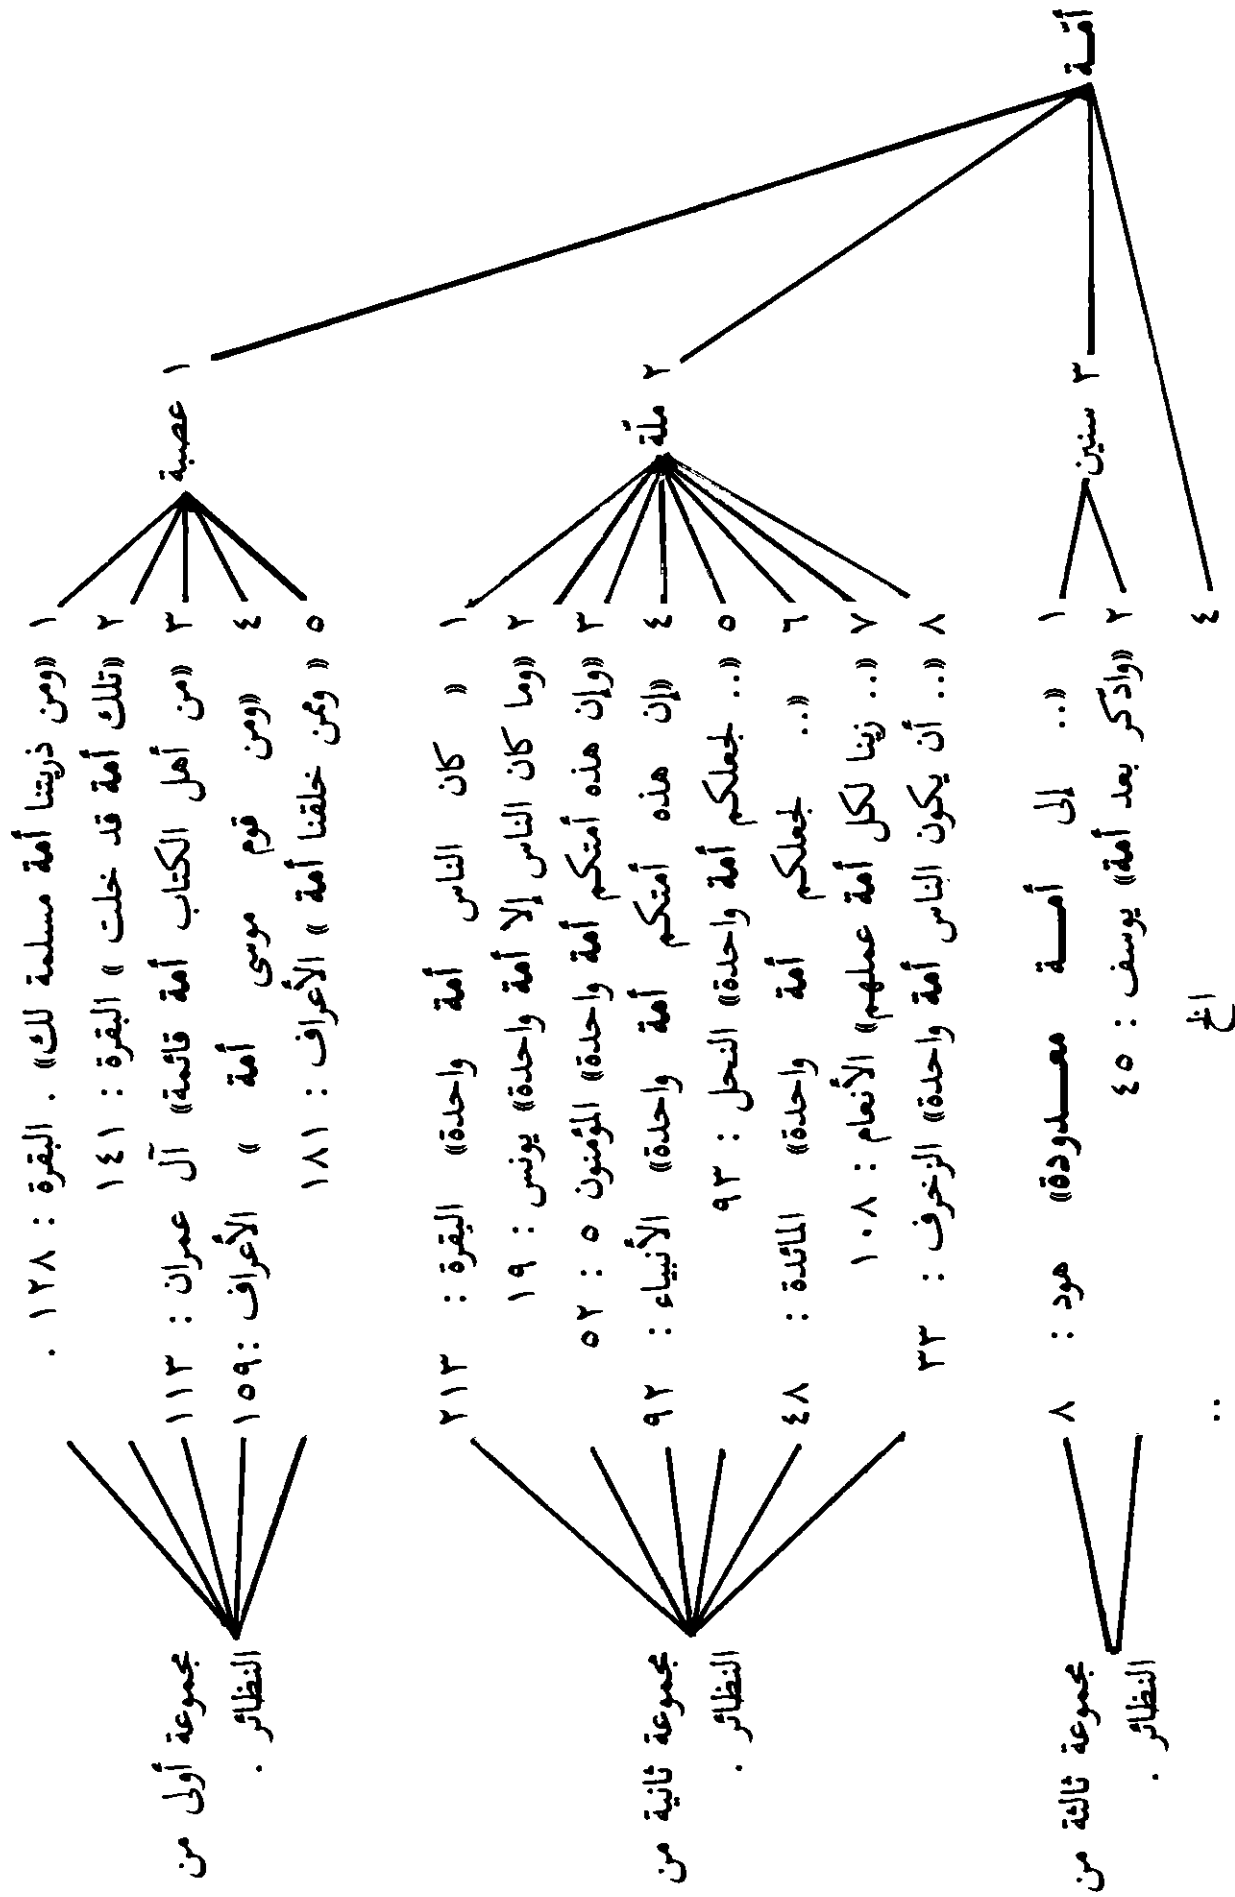 أمّـة
١ عصبة
١ «ومن ذريتنا أمة مسلمة لك» . البقرة : ١٢٨ .
٢ «تلك أمة قد خلت » البقرة : ١٤١
٣ «من أهل الكتاب أمة قائمة» آل عمران : ١١٣
٤ «ومن قوم موسى أمة » الأعراف :١٥٩
٥ « وممن خلقنا أمة » الأعراف : ١٨١
مجموعة أولى من
النظائر .
٢ ملّة
١ « كان الناس أمة واحدة» البقرة : ٢١٣
٢ «وما كان الناس إلا أمة واحدة» يونس : ١٩
٣ «وإن هذه أمتكم أمة واحدة» المؤمنون ٥ : ٥٢
٤ «إن هذه أمتكم أمة واحدة» الأنبياء : ٩٢
٥ «.. لجعلكم أمة واحدة» النحل : ٩٣
٦ «.. لجعلكم أمة واحدة» المائدة : ٤٨
٧ «.. زينا لكل أمة عملهم» الأنعام : ١٠٨
٨ «.. أن يكون الناس أمة واحدة» الزخرف : ٣٣
مجموعة ثانية من
النظائر .
٣ سنين
١ «.. إلى أمـــة معـــدودة» هود : ٨
٢ «وادكر بعد أمة» يوسف : ٤٥
مجموعة ثالثة من
النظائر .
٤ الخ ..